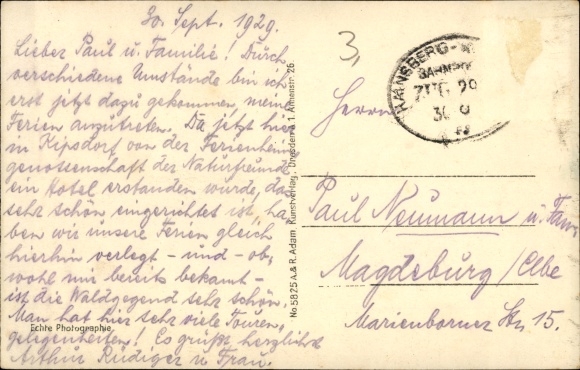 30. Sept. 1929.
Lieber Paul u. Familie! Durch
verschiedene Umstände bin ich
erst jetzt dazu gekommen, meine
Ferien anzutreten. Da jetzt hier
in Kipsdorf von der Ferienheim
genossenschaft der Naturfreunde
ein Hotel erstanden wurde, das
sehr schön eingerichtet ist, ha-
ben wir unsere Ferien gleich
hierhin verlegt - und - ob-
wohl mir bereits bekannt -
ist die Waldgegend sehr schön.
Man hat hier sehr viele Touren-
gelegenheiten! Es grüßt herzlichst
Arthur Rüdiger u. Frau.
Echte Photographie
No. 5825 A. & R. Adam, Kunstverlag, Dresden-A. 1
3,
HAINSBERG-K
BAHNPOST
ZUG
30 9
Herrn
Paul Neumann u. Fam.
Magdeburg/Elbe
Marienborner Str. 15.